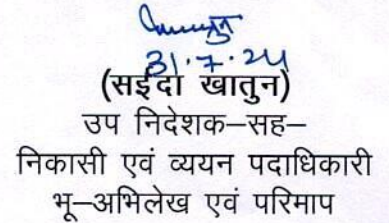 31.7.24
(सईदा खातुन)
उप निदेशक–सह–
निकासी एवं व्ययन पदाधिकारी
भू–अभिलेख एवं परिमाप